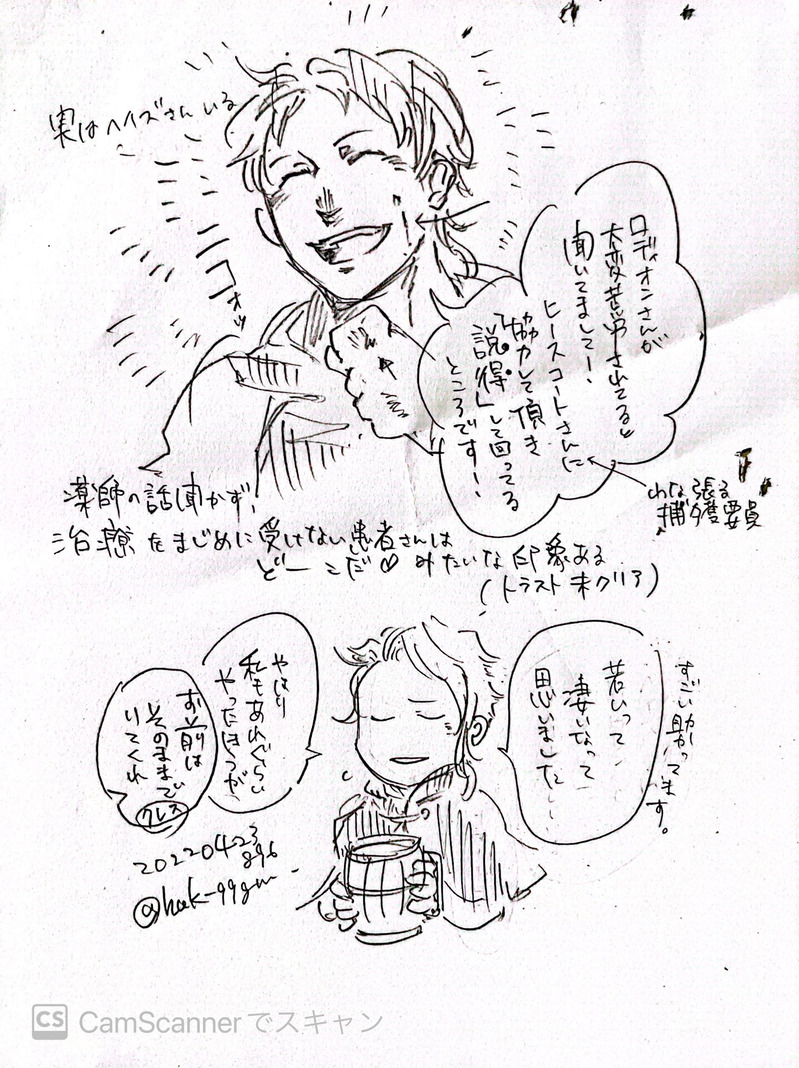 実はヘイズさんいる
ロディオンさんが
大変苦労されてると
聞いてまして!
ヒースコートさんに
協力して頂き
「説得」して回ってる
ところです!
わな張る
捕獲要員
薬師の話聞かず、
治療をまじめに受けない患者さんは
どーこだ♡ みたいな印象ある
(トラスト未クリア)
すごい助かってます。
若いって
凄いなって
思いました…
やはり
私もあれぐらい
やったほうが
お前は
そのままで
いてくれ
クレス
20220423
896
CS CamScannerでスキャン